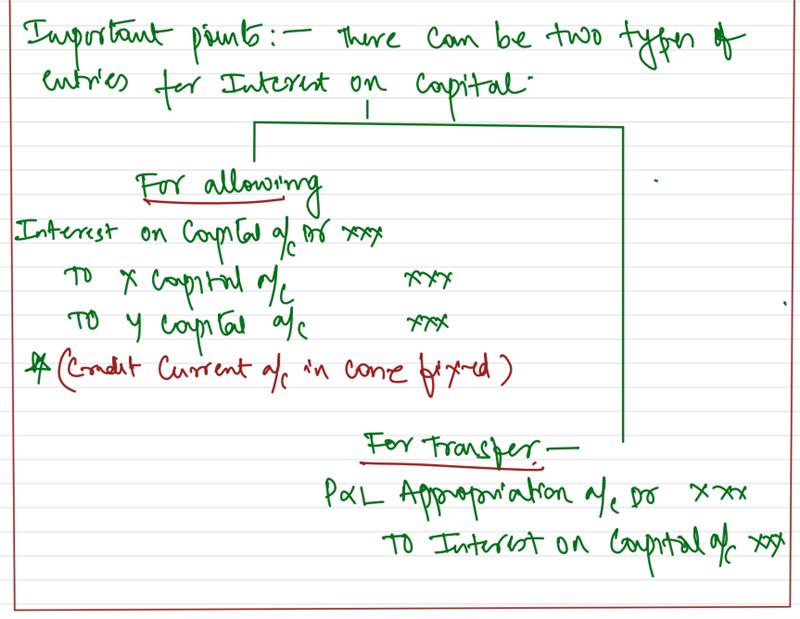 Important points:- There can be two types of
entries for Interest on Capital.
For allowing
Interest on Capital a/c Dr xxx
TO X Capital a/c xxx
TO Y Capital a/c xxx
(Credit Current a/c in case fixed)
For Transfer:-
P&L Appropriation a/c Dr xxx
TO Interest on Capital a/c xxx